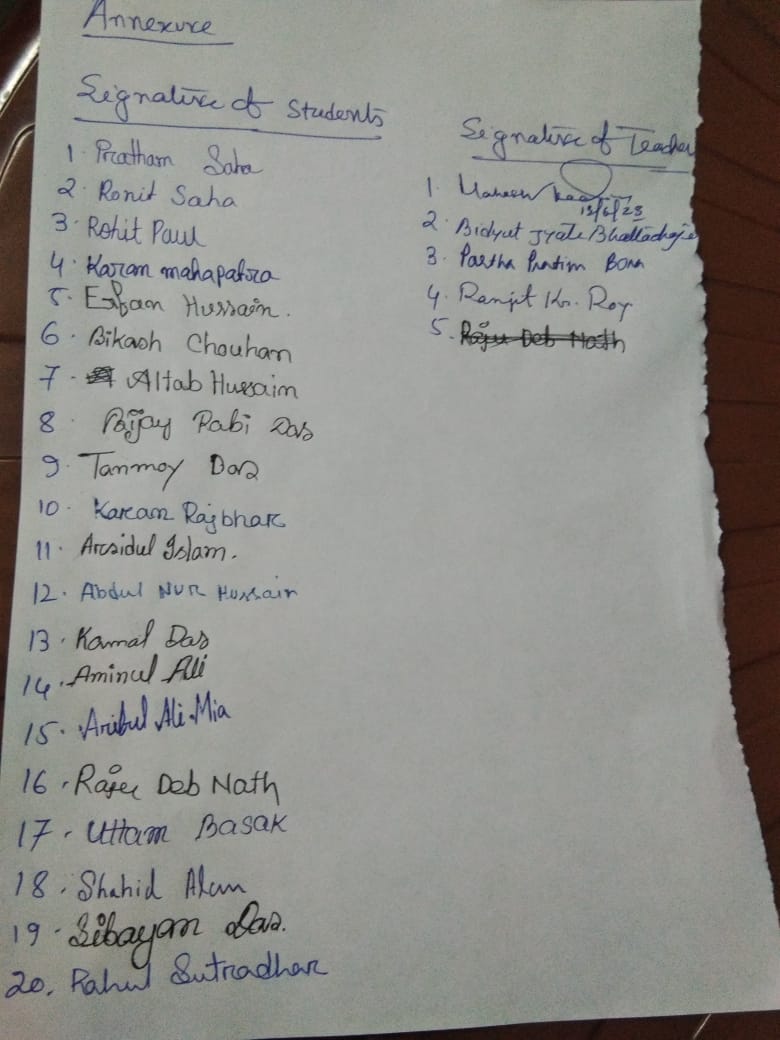 Annexure
Signature of Students
1. Pratham Saha
2. Ronit Saha
3. Rohit Paul
4. Karan mahapatra
5. Erfan Hussain.
6. Bikash Chouhan
7. Altab Hussain
8. Bijay Rabi Das
9. Tanmoy Das
10. Karan Rajbhar
11. Arsidul Islam.
12. Abdul NUR Hussain
13. Kamal Das
14. Aminul Ali
15. Aribul Ali Mia
16. Raju Deb Nath
17. Uttam Basak
18. Shahid Alam
19. Sibayan Das.
20. Rahul Sutradhar
Signature of Teacher
1.
13/6/23
2. Bidyut Jyoti Bhattacharjee
3. Partha Pratim Bora
4. Ranjit Kr. Roy
5. Raju Deb Nath